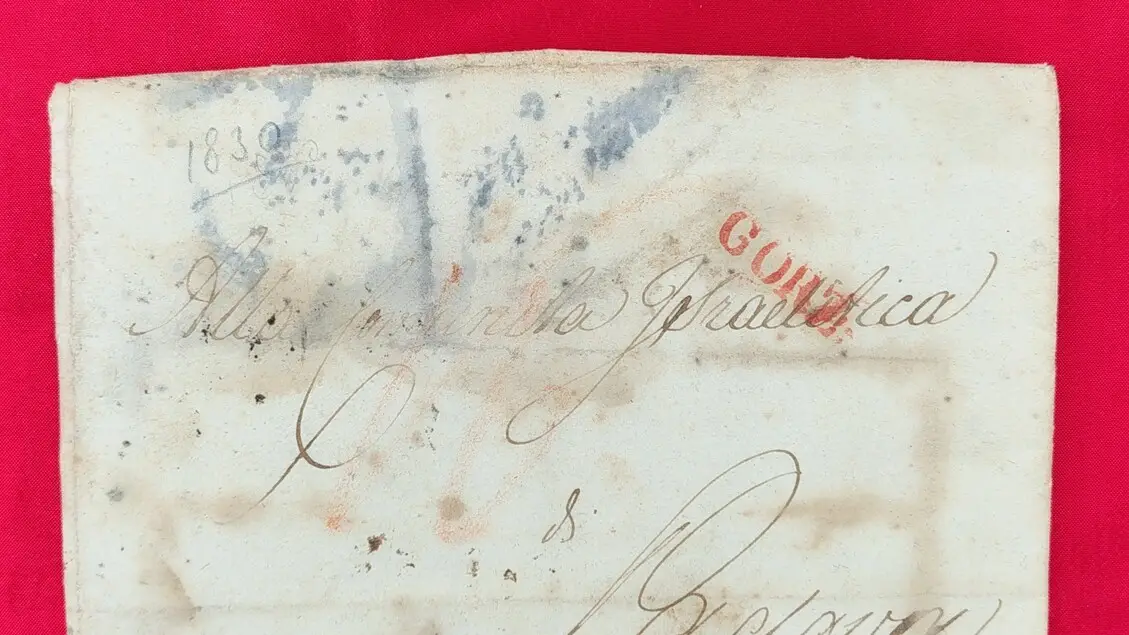 1830
GORIZ
Alla Comunità Israelitica
di